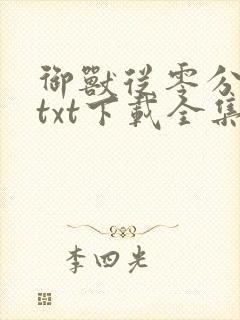 御獸從零分
txt下載全集
李四光